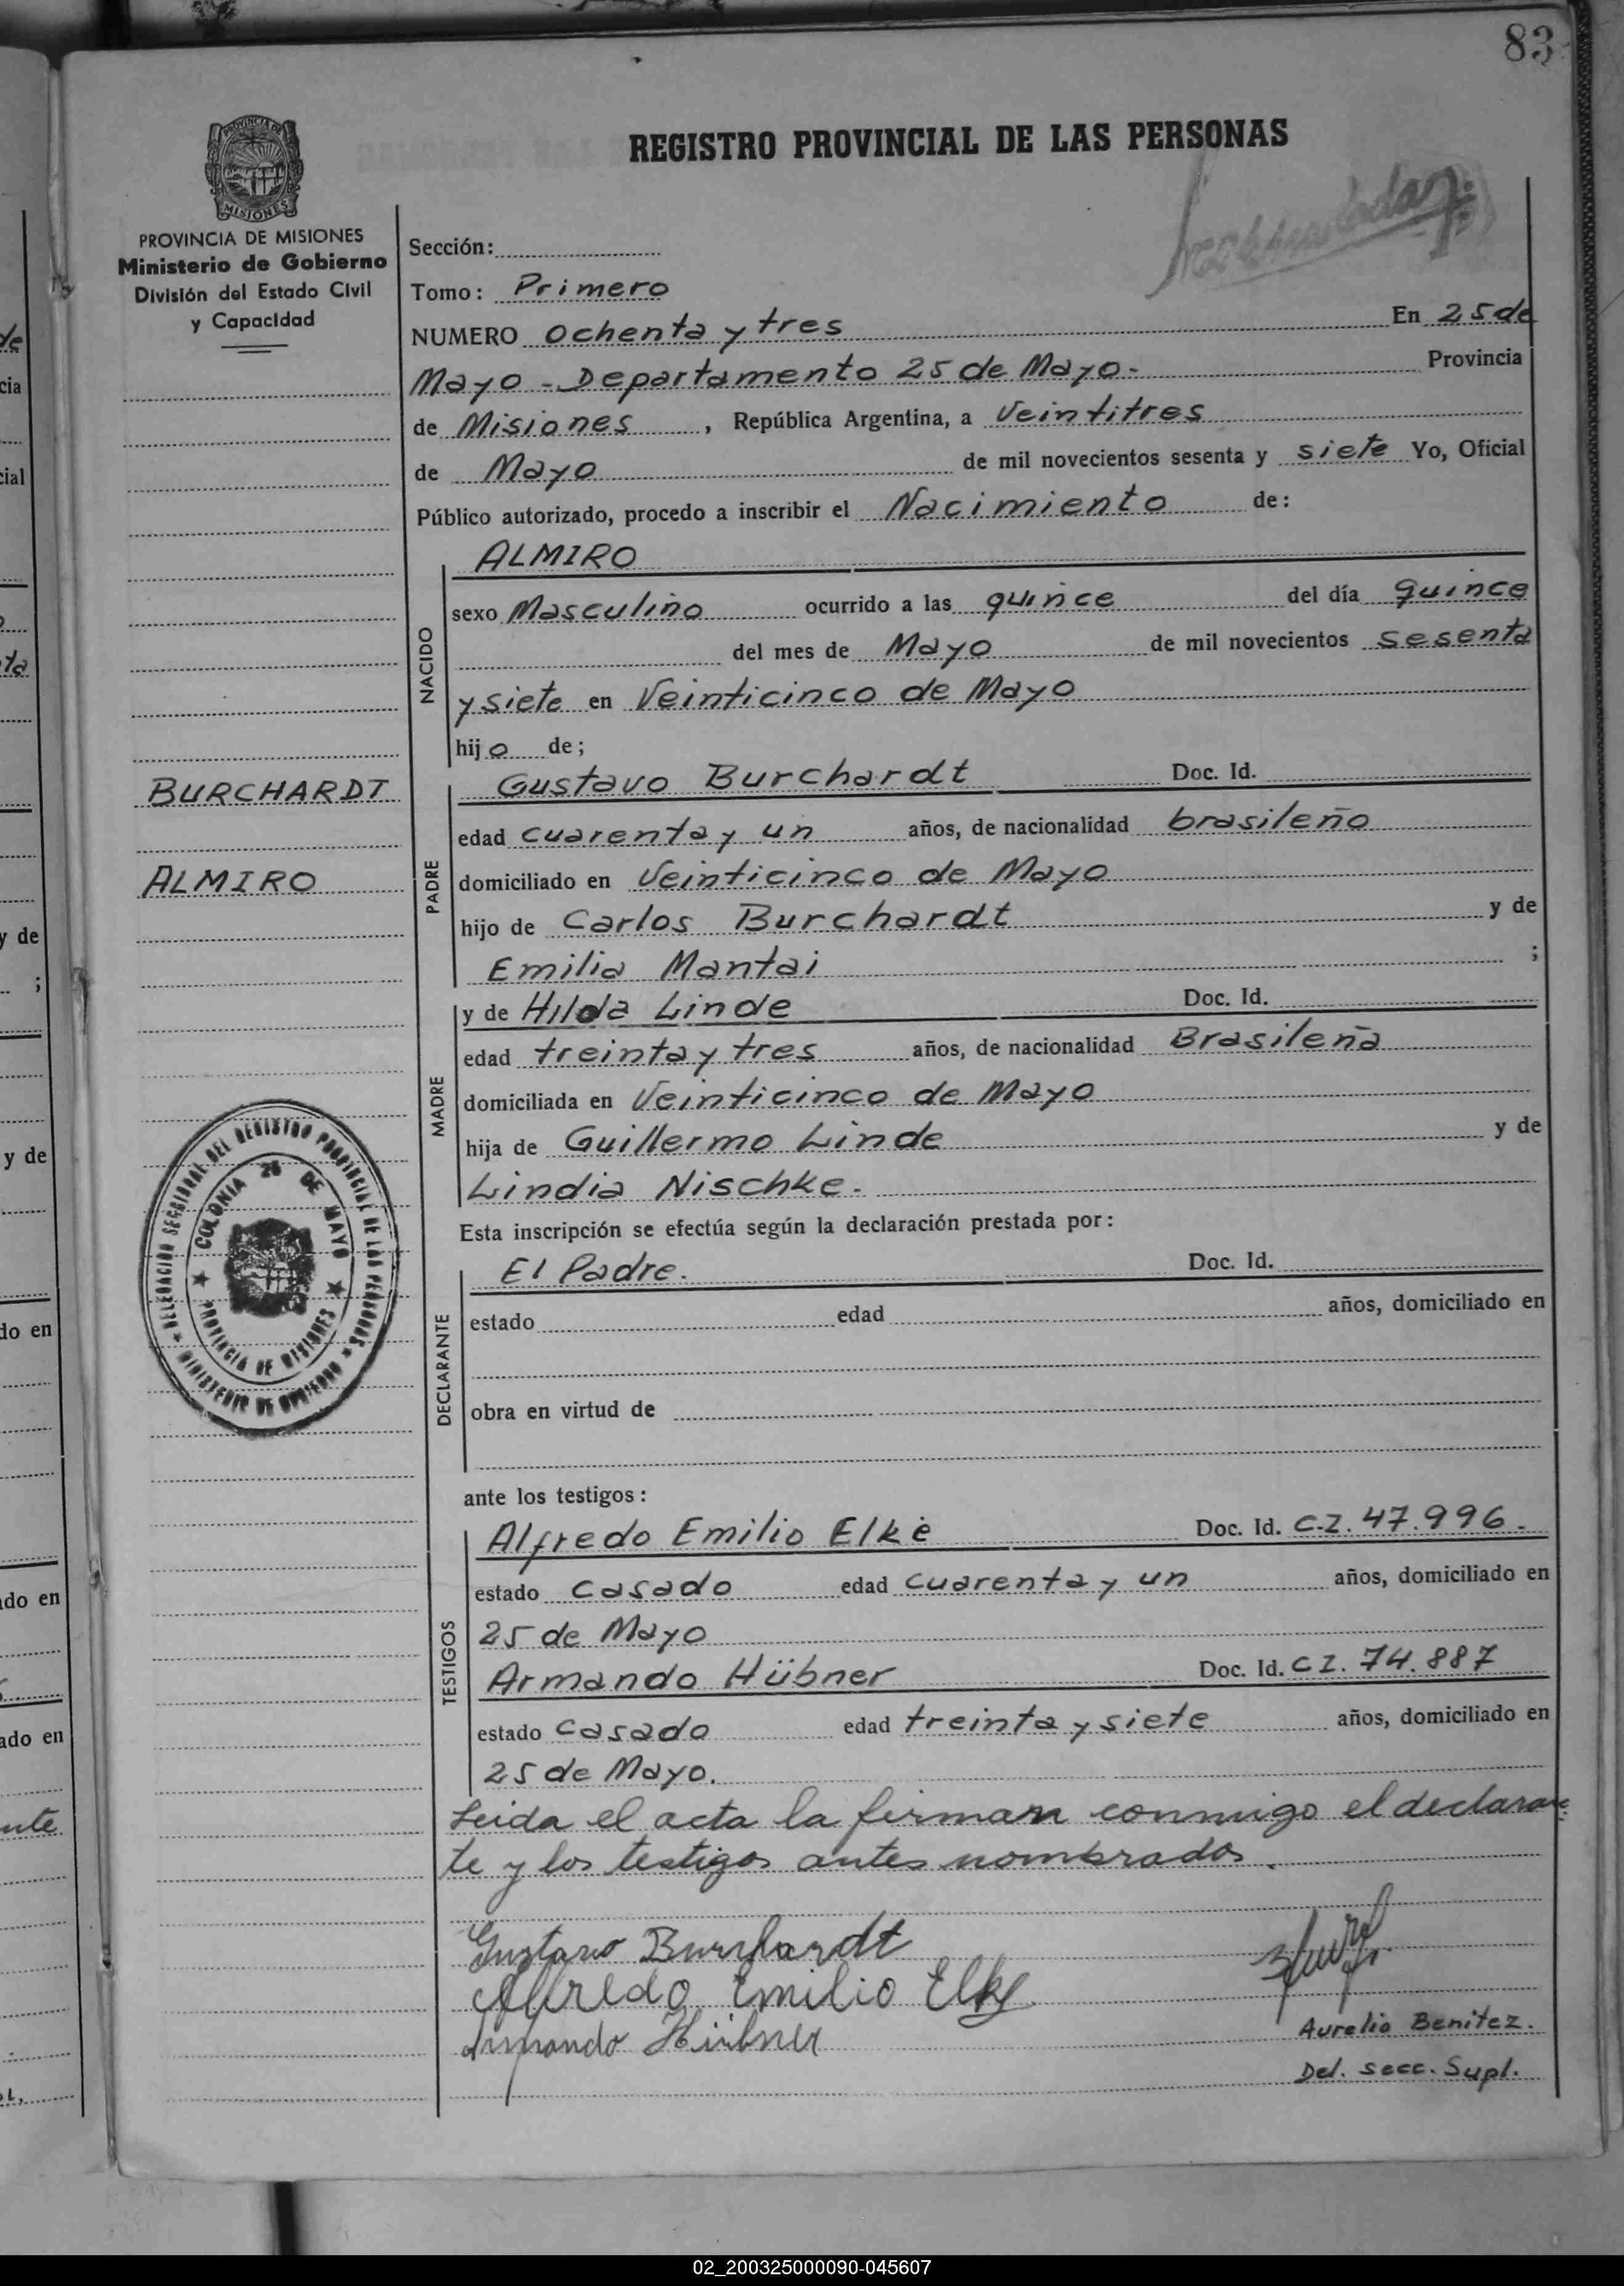 83
REGISTRO PROVINCIAL DE LAS PERSONAS
PROVINCIA DE
MISIONES
PROVINCIA DE MISIONES
Ministerio de Gobierno
División del Estado Civil
y Capacidad
Sección:
Tomo: Primero
NUMERO ochenta y tres En 25 de
Mayo - Departamento 25 de Mayo - Provincia
de Misiones, República Argentina, a Veintitres
de Mayo de mil novecientos sesenta y siete Yo, Oficial
Público autorizado, procedo a inscribir el Nacimiento de:
NACIDO
ALMIRO
sexo Masculino ocurrido a las quince del día quince
del mes de Mayo de mil novecientos sesenta
y siete en Veinticinco de Mayo
hijo de;
BURCHARDT
ALMIRO
PADRE
Gustavo Burchardt Doc. Id.
edad cuarenta y un años, de nacionalidad brasileño
domiciliado en Veinticinco de Mayo
hijo de Carlos Burchardt y de
Emilia Mantai ;
MADRE
y de Hilda Linde Doc. Id.
edad treinta y tres años, de nacionalidad Brasileña
domiciliada en Veinticinco de Mayo
hija de Guillermo Linde y de
Lindia Nischke.
DELEGACION SECCIONAL DEL REGISTRO PROVINCIAL DE LAS PERSONAS
MINISTERIO DE GOBIERNO
COLONIA 25 DE MAYO
PROVINCIA DE MISIONES
Esta inscripción se efectúa según la declaración prestada por:
DECLARANTE
El Padre. Doc. Id.
estado edad años, domiciliado en
obra en virtud de
ante los testigos:
TESTIGOS
Alfredo Emilio Elke Doc. Id. C.I. 47.996.
estado casado edad cuarenta y un años, domiciliado en
25 de Mayo
Armando Hübner Doc. Id. C I. 74.887
estado casado edad treinta y siete años, domiciliado en
25 de Mayo.
Leida el acta la firman conmigo el declaran
te y los testigos antes nombrados.
Gustavo Burchardt
Alfredo Emilio Elke
Armando Hübner
Aurelio Benitez.
Del. secc. Supl.
02_200325000090-045607